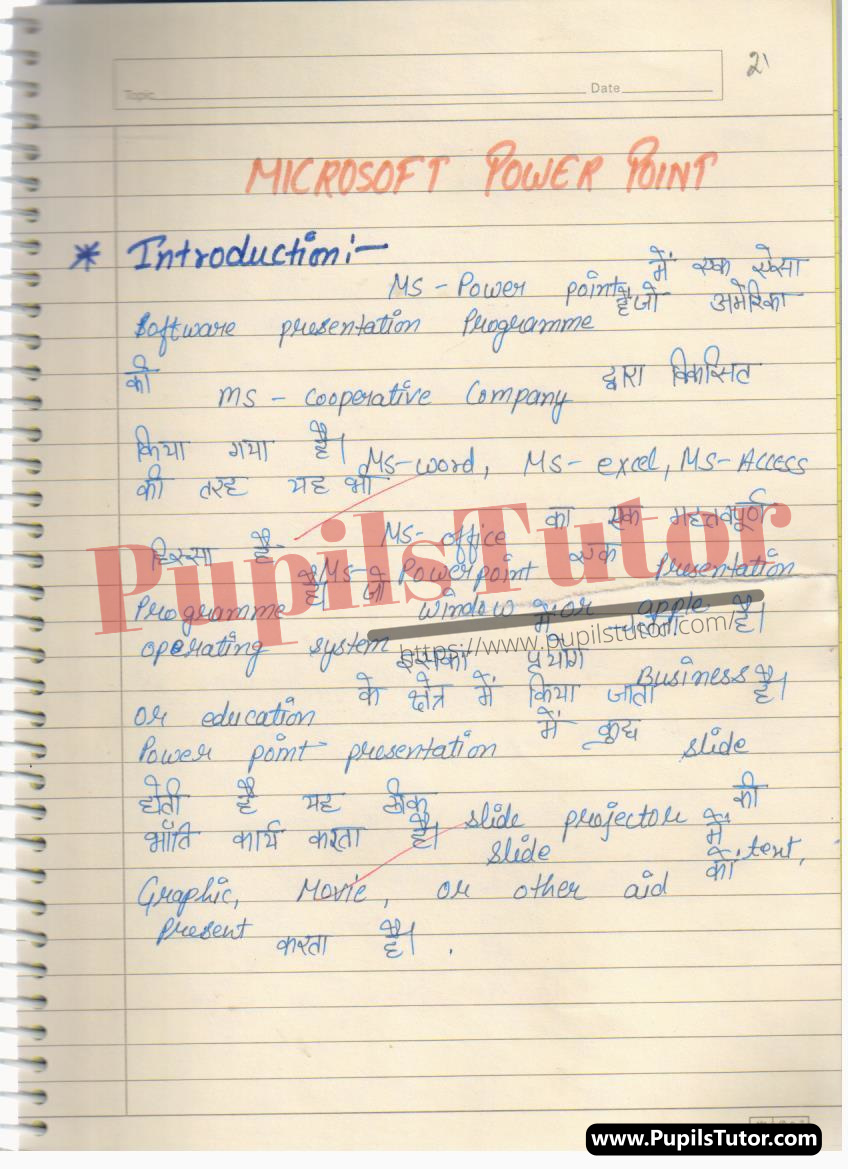 21
Topic Date
MICROSOFT POWER POINT
* Introduction:-
MS-Power point में एक ऐसा
Software presentation Programme है जो अमेरिका
की MS-Cooperative Company द्वारा विकसित
किया गया है। MS-word, MS-excel, MS-ACCESS
की तरह यह भी MS-office का एक महत्वपूर्ण
हिस्सा है MS-Powerpoint एक Presentation
Programme है। जो window or apple
operating system में चलता है।
इसका प्रयोग Business
or education के क्षेत्र में किया जाता है।
Power point presentation में कुछ slide
होती है यह ठीक slide projector की
भाँति कार्य करता है। slide में text,
Graphic, Movie, or other aid को
present करता है।
PupilsTutor
https://www.pupilstutor.com/
www.PupilsTutor.com